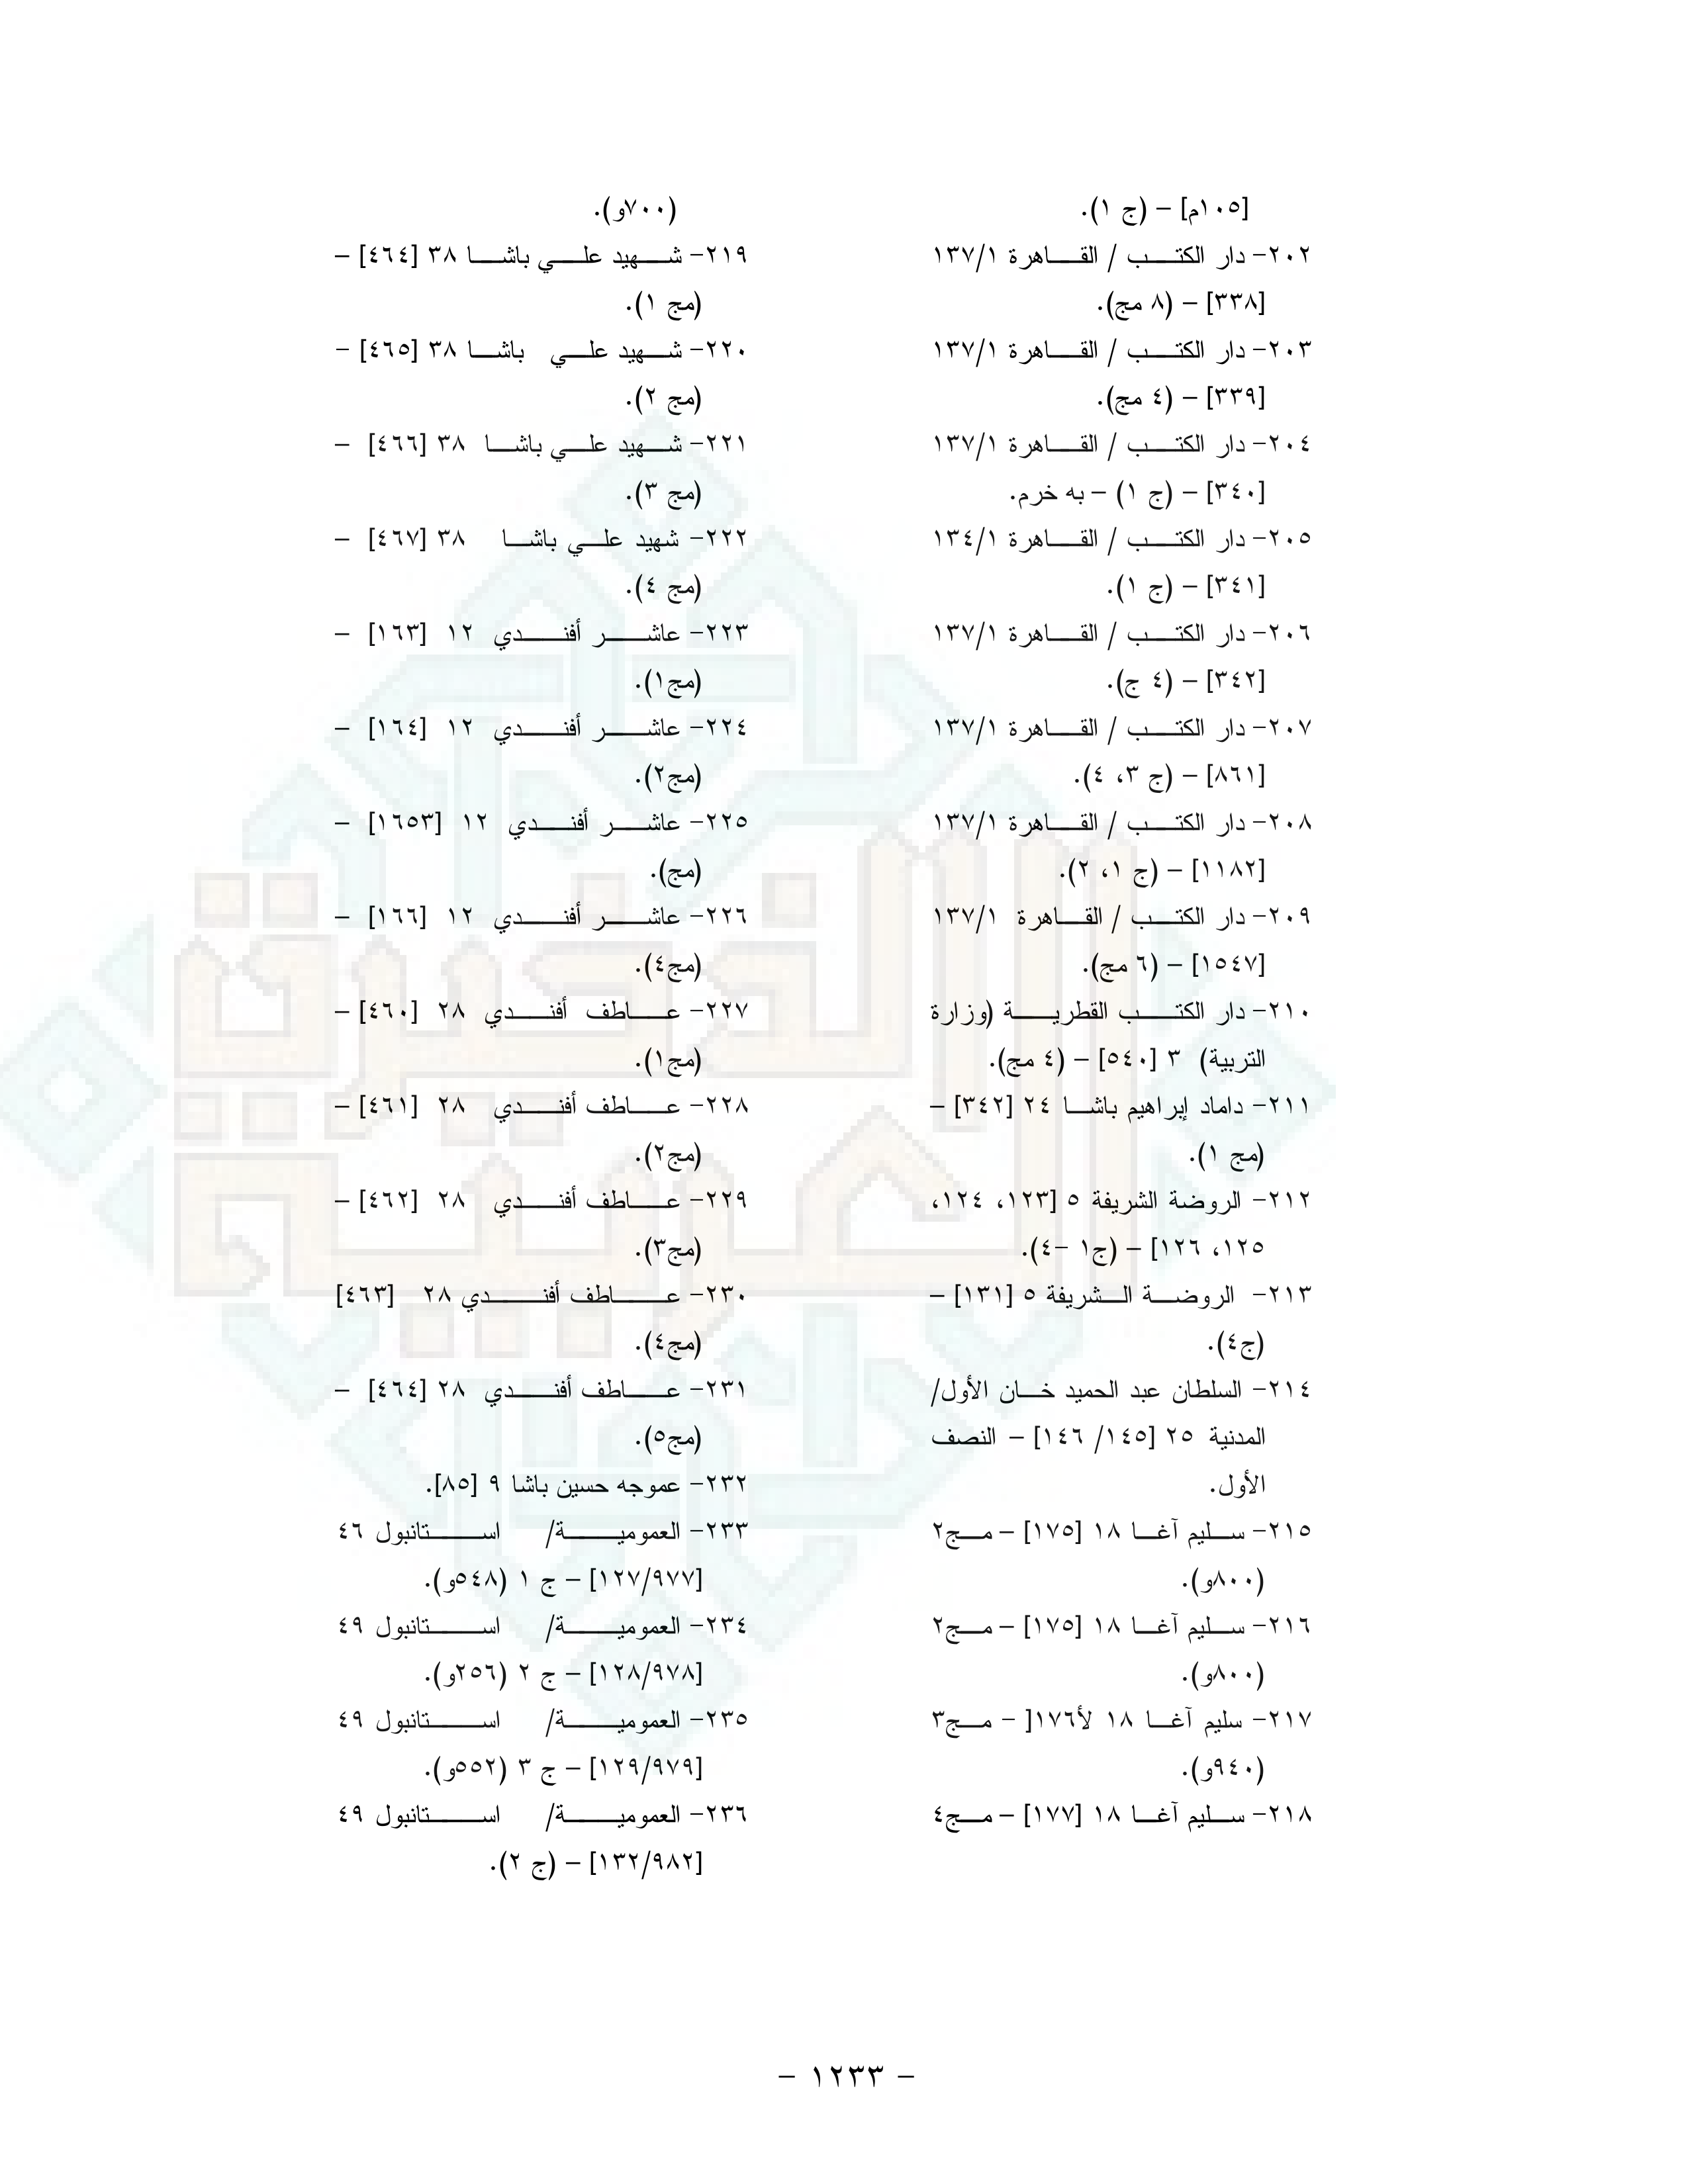 [١٠٥م] – (ج ١).
٢٠٢- دار الكتب / القاهرة ١٣٧/١
[٣٣٨] – (٨ مج).
٢٠٣- دار الكتب / القاهرة ١٣٧/١
[٣٣٩] – (٤ مج).
٢٠٤- دار الكتب / القاهرة ١٣٧/١
[٣٤٠] – (ج ١) – به خرم.
٢٠٥- دار الكتب / القاهرة ١٣٤/١
[٣٤١] – (ج ١).
٢٠٦- دار الكتب / القاهرة ١٣٧/١
[٣٤٢] – (٤ ج).
٢٠٧- دار الكتب / القاهرة ١٣٧/١
[٨٦١] – (ج ٣، ٤).
٢٠٨- دار الكتب / القاهرة ١٣٧/١
[١١٨٢] – (ج ١، ٢).
٢٠٩- دار الكتب / القاهرة ١٣٧/١
[١٥٤٧] – (٦ مج).
٢١٠- دار الكتب القطرية (وزارة
التربية) ٣ [٥٤٠] – (٤ مج).
٢١١- داماد إبراهيم باشا ٢٤ [٣٤٢] –
(مج ١).
٢١٢- الروضة الشريفة ٥ [١٢٣، ١٢٤،
١٢٥، ١٢٦] – (ج١ -٤).
٢١٣- الروضة الشريفة ٥ [١٣١] –
(ج٤).
٢١٤- السلطان عبد الحميد خان الأول/
المدنية ٢٥ [١٤٥/ ١٤٦] – النصف
الأول.
٢١٥- سليم آغا ١٨ [١٧٥] – مج٢
(٨٠٠و).
٢١٦- سليم آغا ١٨ [١٧٥] – مج٢
(٨٠٠و).
٢١٧- سليم آغا ١٨ لأ١٧٦[ – مج٣
(٩٤٠و).
٢١٨- سليم آغا ١٨ [١٧٧] – مج٤
(٧٠٠و).
٢١٩- شهيد علي باشا ٣٨ [٤٦٤] –
(مج ١).
٢٢٠- شهيد علي باشا ٣٨ [٤٦٥] -
(مج ٢).
٢٢١- شهيد علي باشا ٣٨ [٤٦٦] –
(مج ٣).
٢٢٢- شهيد علي باشا ٣٨ [٤٦٧] –
(مج ٤).
٢٢٣- عاشر أفندي ١٢ [١٦٣] –
(مج١).
٢٢٤- عاشر أفندي ١٢ [١٦٤] –
(مج٢).
٢٢٥- عاشر أفندي ١٢ [١٦٥٣] –
(مج).
٢٢٦- عاشر أفندي ١٢ [١٦٦] –
(مج٤).
٢٢٧- عاطف أفندي ٢٨ [٤٦٠] –
(مج١).
٢٢٨- عاطف أفندي ٢٨ [٤٦١] –
(مج٢).
٢٢٩- عاطف أفندي ٢٨ [٤٦٢] –
(مج٣).
٢٣٠- عاطف أفندي ٢٨ [٤٦٣]
(مج٤).
٢٣١- عاطف أفندي ٢٨ [٤٦٤] –
(مج٥).
٢٣٢- عموجه حسين باشا ٩ [٨٥].
٢٣٣- العمومية/ استانبول ٤٦
[١٢٧/٩٧٧] – ج ١ (٥٤٨و).
٢٣٤- العمومية/ استانبول ٤٩
[١٢٨/٩٧٨] – ج ٢ (٢٥٦و).
٢٣٥- العمومية/ استانبول ٤٩
[١٢٩/٩٧٩] – ج ٣ (٥٥٢و).
٢٣٦- العمومية/ استانبول ٤٩
[١٣٢/٩٨٢] – (ج ٢).
الذخيرة
العربية
– ١٢٣٣ –